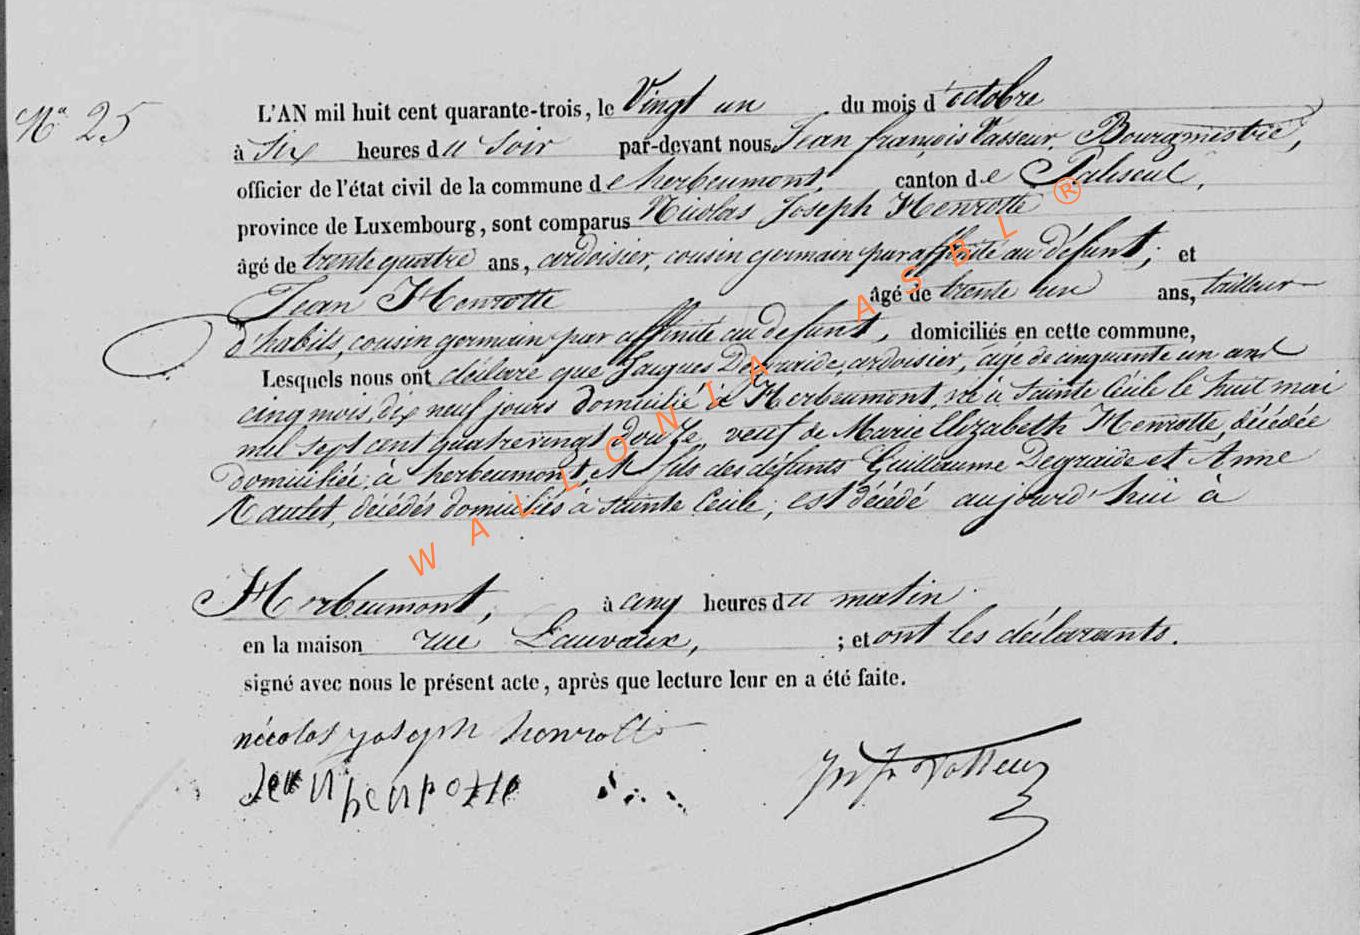 Nº 25
L'AN mil huit cent quarante-trois, le Vingt un du mois d'octobre
à Six heures du Soir par-devant nous Jean françois Vasseur, Bourgmestre,
officier de l'état civil de la commune de herbeumont, canton de Paliseul,
province de Luxembourg, sont comparus Nicolas Joseph Henrotte
âgé de trente quatre ans, ardoisier, cousin germain par affinité au défunt; et
Jean Henrotte âgé de trente un ans, tailleur
d'habits, cousin germain par affinité au defunt, domiciliés en cette commune,
Lesquels nous ont déclaré que Jacques Degraide, ardoisier, agé de cinquante un ans
cinq mois, dix neuf jours domicilié à Herbeumont, né à Sainte Cécile le huit mai
mil sept cent quatrevingt douze, veuf de Marie Elizabeth Henrotte, décédée
Domiciliée à herbeumont, et fils des défunts Guillaume Degraide et Anne
décédés domiciliés à Sainte Cecile; est décédé aujourd'hui à
Herbeumont, à cinq heures du matin
en la maison rue Lauvaux, ; et ont les déclarants.
signé avec nous le présent acte, après que lecture leur en a été faite.
nicolas joseph henrotte
Jean henrotte
WALLONIA ASBL ®